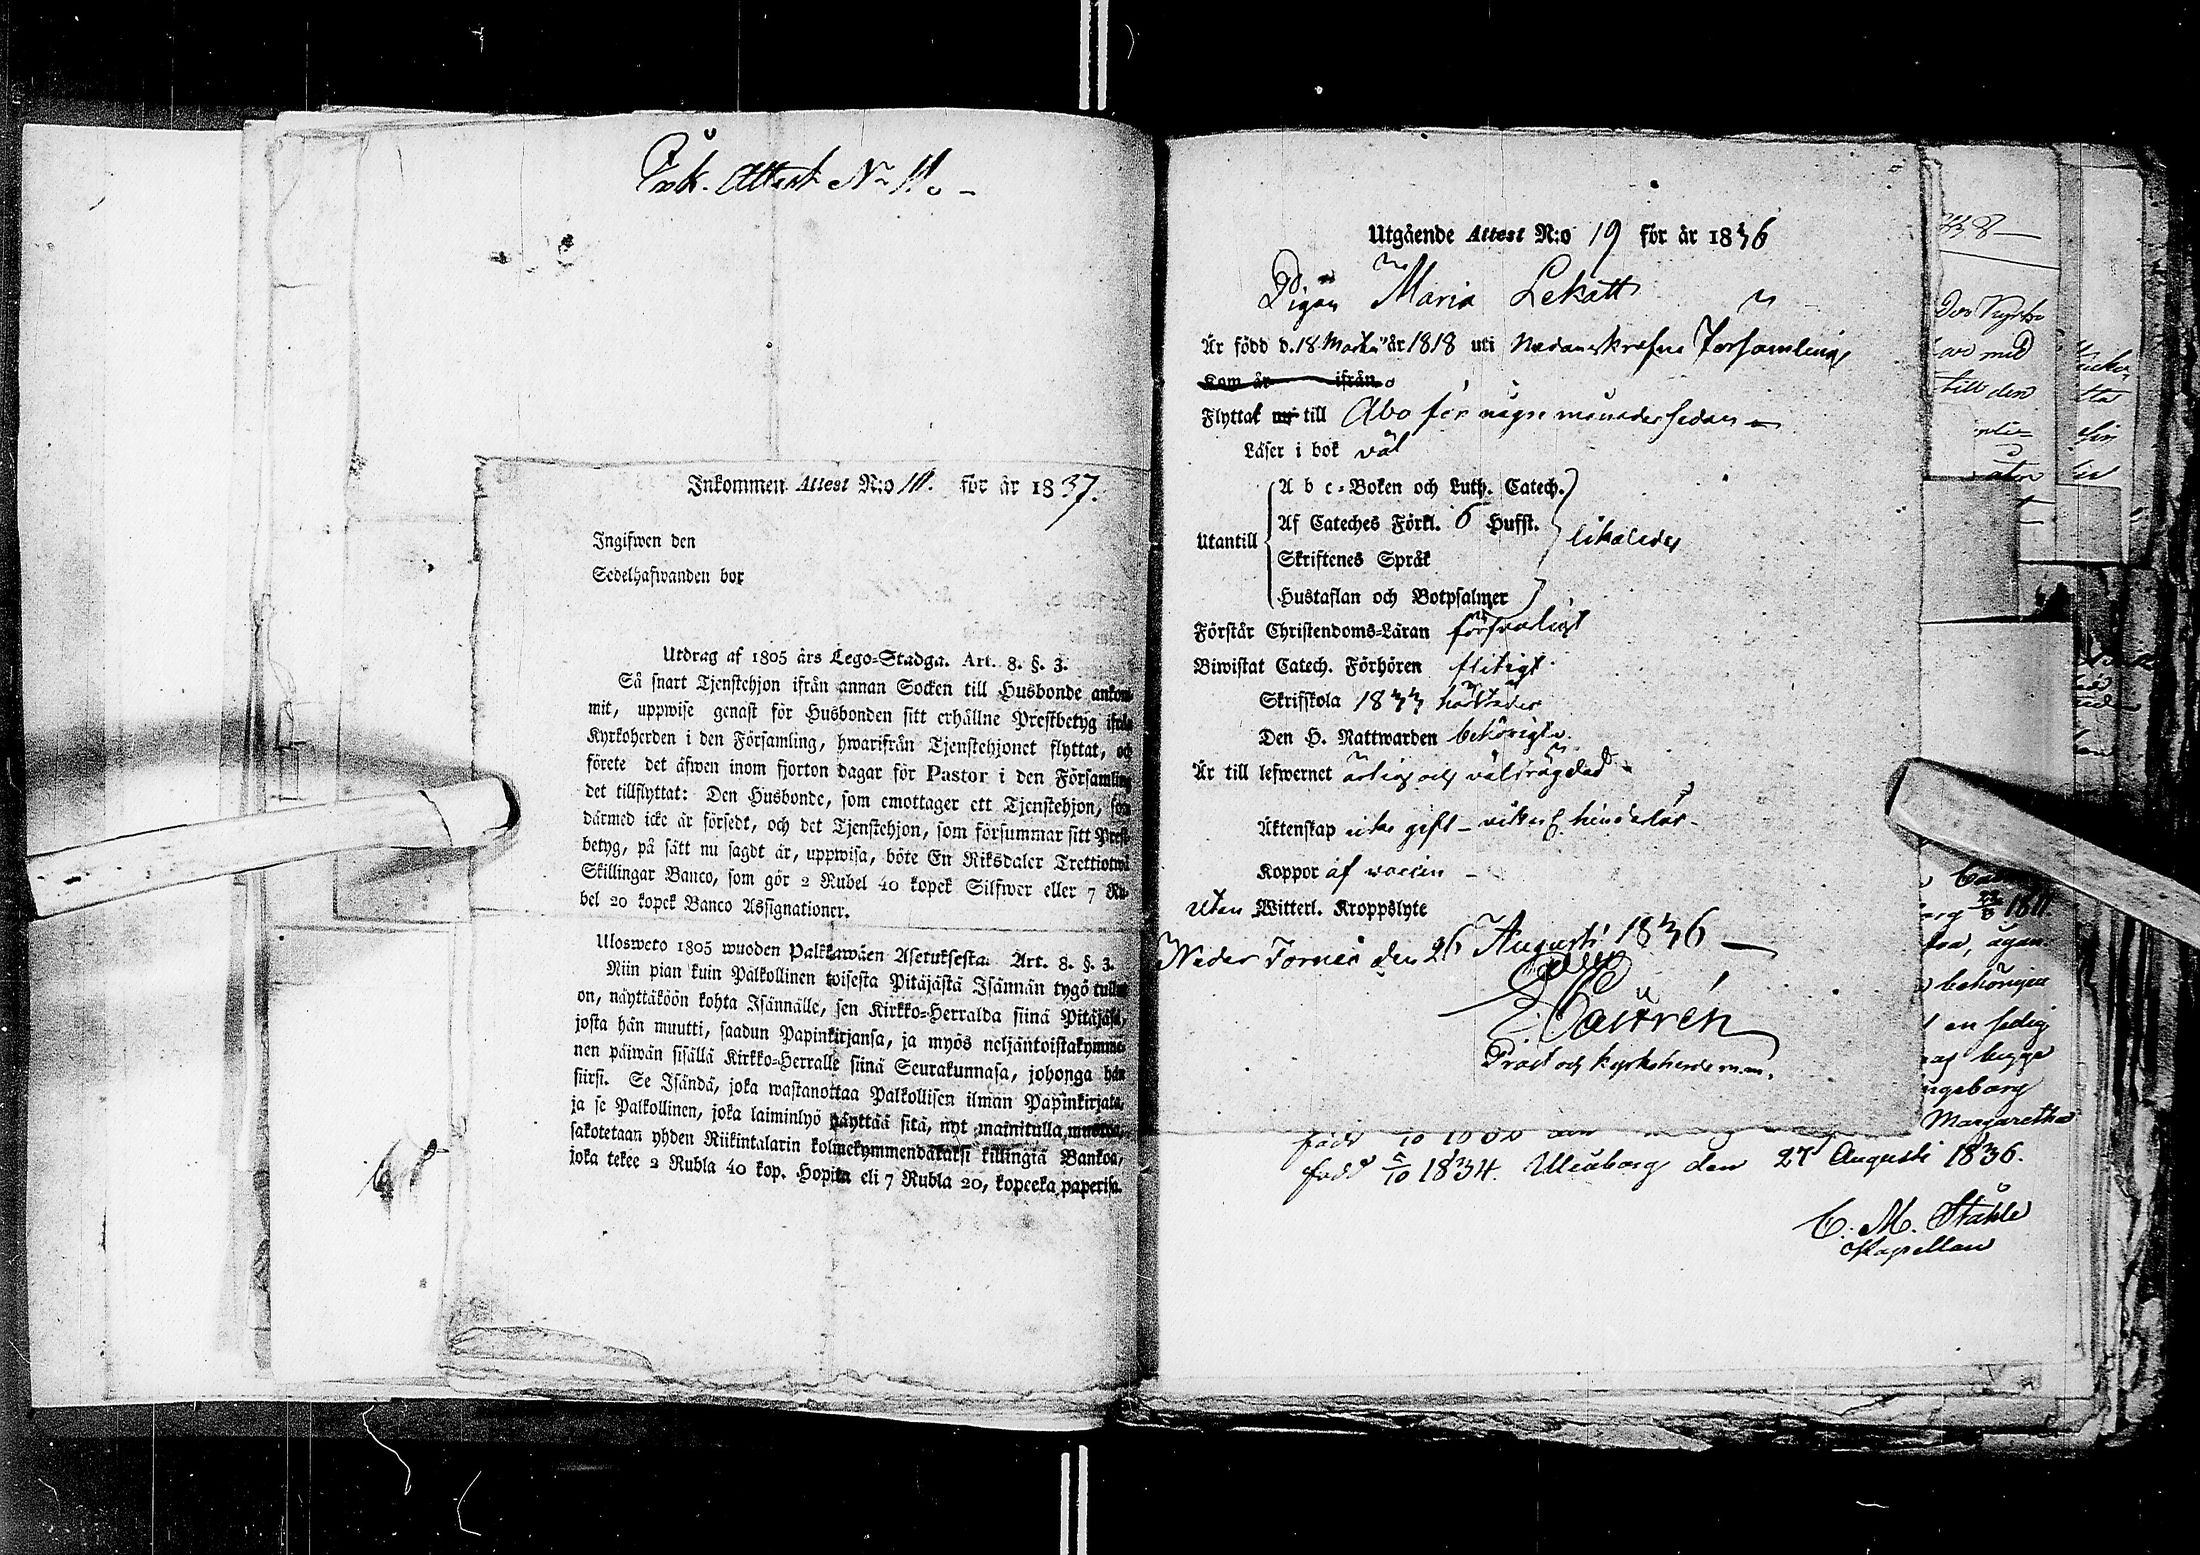 Ink. Attest No 11.
Inkommen Attest N:o 11. för år 1837.
Ingifwen den
Sedelhafwanden bor
Utdrag af 1805 års Lego-Stadga. Art. 8. §. 3.
Så snart Tjenstehjon ifrån annan Socken till Husbonde ankom-
mit, uppwise genast för Husbonden sitt erhållne Prestbetyg ifrån
Kyrkoherden i den Församling, hwarifrån Tjenstehjonet flyttat, och
förete det äfwen inom fjorton dagar för Pastor i den Församling
det tillflyttat: Den Husbonde, som emottager ett Tjenstehjon, som
därmed icke är försedt, och det Tjenstehjon, som försummar sitt Prest-
betyg, på sätt nu sagdt är, uppwisa, böte En Riksdaler Trettiotwå
Skillingar Banco, som gör 2 Rubel 40 kopek Silfwer eller 7 Ru-
bel 20 kopek Banco Assignationer.
Ulosweto 1805 wuoden Palkkawäen Asetuksesta. Art. 8. §. 3.
Niin pian kuin Palkollinen toisesta Pitäjästä Isännän tygö tullut
on, näyttäköön kohta Isännälle, sen Kirkko-Herralda siinä Pitäjäsä,
josta hän muutti, saadun Papinkirjansa, ja myös neljäntoistakymme-
nen päiwän sisällä Kirkko-Herralle siinä Seurakunnasa, johonga hän
siirsi. Se Isändä, joka wastanottaa Palkollisen ilman Papinkirjata,
ja se Palkollinen, joka laiminlyö näyttää sitä, nyt mainitulla muotoa,
sakotetaan yhden Riikintalarin kolmekymmendäkaksi killingiä Bankoa,
joka tekee 2 Rubla 40 kop. Hopita eli 7 Rubla 20, kopeeka paperisa.
Utgående Attest N:o 19 för år 1836
Pigan Maria Lekatt
Är född d. 18 Martii år 1818 uti nedanskrefne Församling
Kom år ifrån
Flyttat nu till Åbo för någre månader sedan
Läser i bok väl
Utantill
A b c-Boken och Luth. Catech.
Af Cateches Förkl. 6 Hufst.
Skriftenes Språk
Hustaflan och Botpsalmer
likaledes
Förstår Christendoms-Läran försvarligt
Biwistat Catech. Förhören flitigt
Skrifskola 1833
Den H. Nattwarden behörigt
Är till lefwernet ärlig och välfrägdad
Äktenskap icke gift - hinderlös
Koppor af vaccin
Utan Witterl. Kroppslyte
Neder Torneå den 26 Augusti 1836
E. Castrén
Prost och kyrkoherde m.m.
född 5/10 1834. Uleåborg den 27 Augusti 1836.
C. M. Ståhle
Kapellan
338
med
till den
1811.
behörigen
en ledig
bygge
Ingeborg
Margaretha